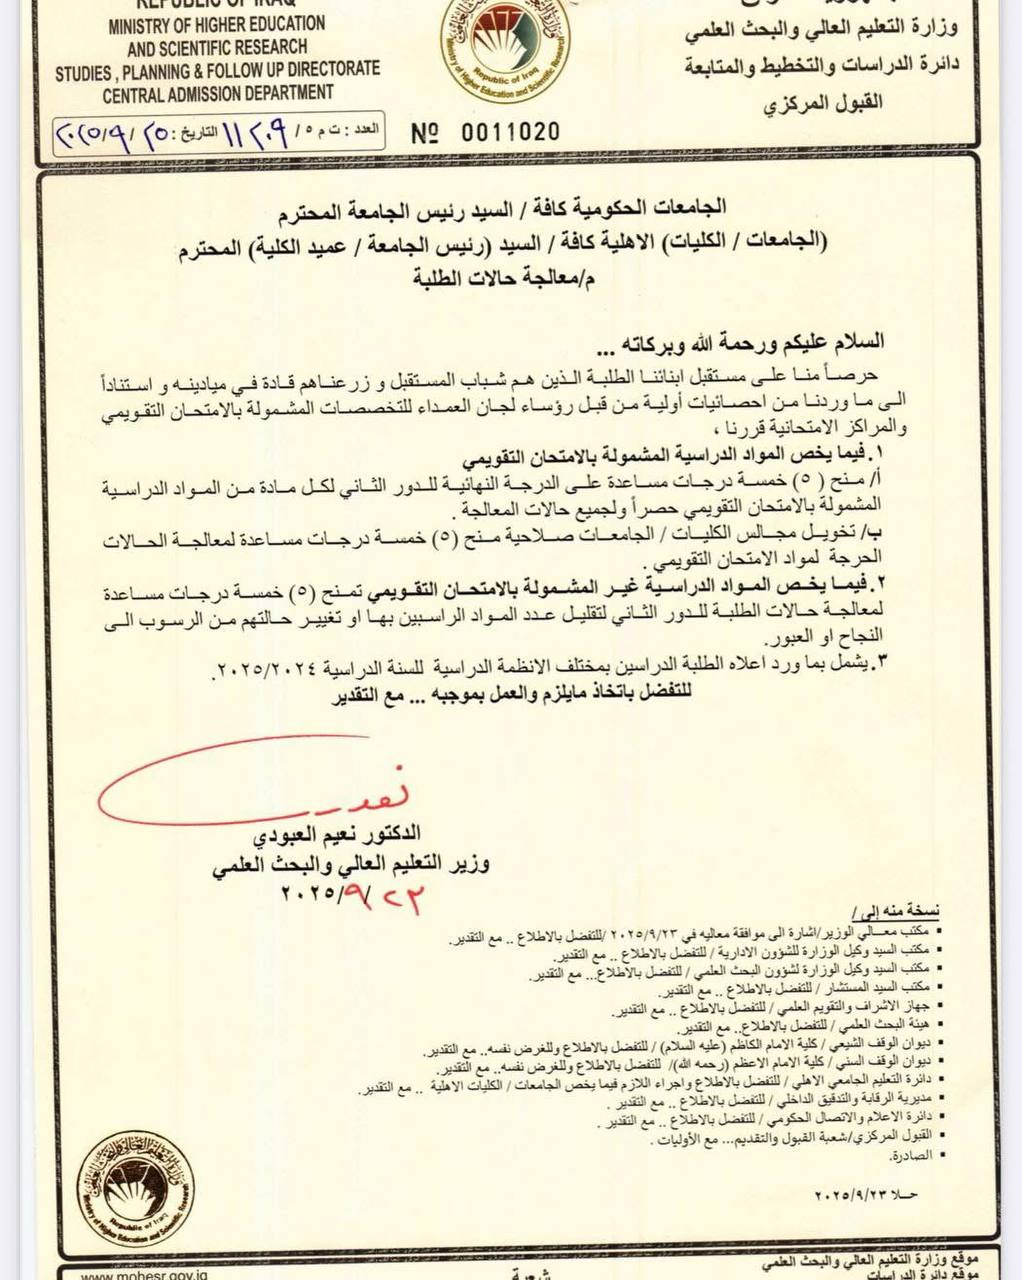 REPUBLIC OF IRAQ
MINISTRY OF HIGHER EDUCATION
AND SCIENTIFIC RESEARCH
STUDIES , PLANNING & FOLLOW UP DIRECTORATE
CENTRAL ADMISSION DEPARTMENT
وزارة التعليم العالي والبحث العلمي
دائرة الدراسات والتخطيط والمتابعة
القبول المركزي
Ministry of Higher Education and Scientific Research
Republic of Iraq
العدد : ت م ٥ / ١١٢٠٩ التاريخ : ٢٠٢٥/٩/٢٥
Nº 0011020
الجامعات الحكومية كافة / السيد رئيس الجامعة المحترم
(الجامعات / الكليات) الاهلية كافة / السيد (رئيس الجامعة / عميد الكلية) المحترم
م/معالجة حالات الطلبة
السلام عليكم ورحمة الله وبركاته ...
حرصاً منا على مستقبل ابنائنا الطلبة الذين هم شباب المستقبل و زرعناهم قادة في ميادينه و استناداً
الى ما وردنا من احصائيات أولية من قبل رؤساء لجان العمداء للتخصصات المشمولة بالامتحان التقويمي
والمراكز الامتحانية قررنا ،
١. فيما يخص المواد الدراسية المشمولة بالامتحان التقويمي
أ/ منح ( ٥) خمسة درجات مساعدة على الدرجة النهائية للدور الثاني لكل مادة من المواد الدراسية
المشمولة بالامتحان التقويمي حصراً ولجميع حالات المعالجة .
ب/ تخويل مجالس الكليات / الجامعات صلاحية منح (٥) خمسة درجات مساعدة لمعالجة الحالات
الحرجة لمواد الامتحان التقويمي .
٢. فيما يخص المواد الدراسية غير المشمولة بالامتحان التقويمي تمنح (٥) خمسة درجات مساعدة
لمعالجة حالات الطلبة للدور الثاني لتقليل عدد المواد الراسبين بها او تغيير حالتهم من الرسوب الى
النجاح او العبور.
٣. يشمل بما ورد اعلاه الطلبة الدراسين بمختلف الانظمة الدراسية للسنة الدراسية ٢٠٢٥/٢٠٢٤.
للتفضل باتخاذ مايلزم والعمل بموجبه ... مع التقدير
الدكتور نعيم العبودي
وزير التعليم العالي والبحث العلمي
٢٠٢٥/٩/٢٣
نسخة منه إلى /
▪ مكتب معالي الوزير/اشارة الى موافقة معاليه في ٢٠٢٥/٩/٢٣ /للتفضل بالاطلاع .. مع التقدير.
▪ مكتب السيد وكيل الوزارة للشؤون الادارية / للتفضل بالاطلاع .. مع التقدير.
▪ مكتب السيد وكيل الوزارة لشؤون البحث العلمي / للتفضل بالاطلاع... مع التقدير.
▪ مكتب السيد المستشار / للتفضل بالاطلاع .. مع التقدير.
▪ جهاز الاشراف والتقويم العلمي / للتفضل بالاطلاع .. مع التقدير.
▪ هيئة البحث العلمي / للتفضل بالاطلاع.. مع التقدير.
▪ ديوان الوقف الشيعي / كلية الامام الكاظم (عليه السلام) / للتفضل بالاطلاع وللغرض نفسه.. مع التقدير.
▪ ديوان الوقف السني / كلية الامام الاعظم (رحمه الله)/ للتفضل بالاطلاع وللغرض نفسه.. مع التقدير.
▪ دائرة التعليم الجامعي الاهلي / للتفضل بالاطلاع واجراء اللازم فيما يخص الجامعات / الكليات الاهلية .. مع التقدير.
▪ مديرية الرقابة والتدقيق الداخلي / للتفضل بالاطلاع .. مع التقدير .
▪ دائرة الاعلام والاتصال الحكومي / للتفضل بالاطلاع .. مع التقدير .
▪ القبول المركزي/شعبة القبول والتقديم... مع الأوليات .
▪ الصادرة.
حلا ٢٠٢٥/٩/٢٣
Ministry of Higher Education and Scientific Research
Republic of Iraq
موقع وزارة التعليم العالي والبحث العلمي
موقع دائرة الدراسات
شعبة
www.mohesr.gov.iq